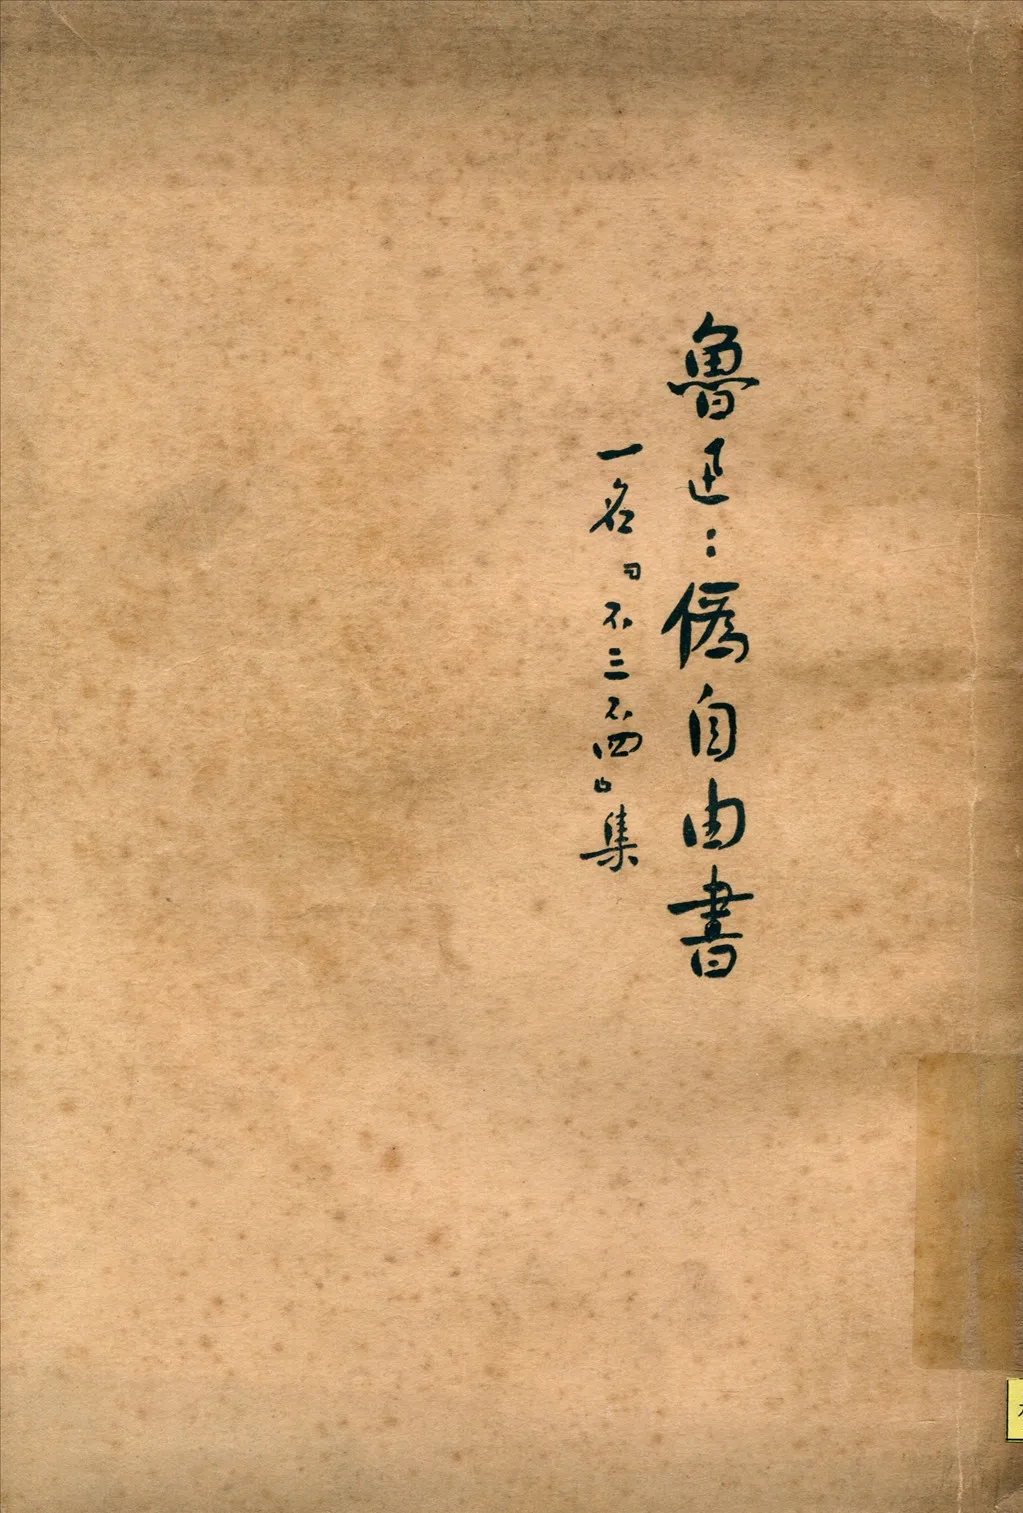 魯迅：偽自由書
一名「不三不四」集